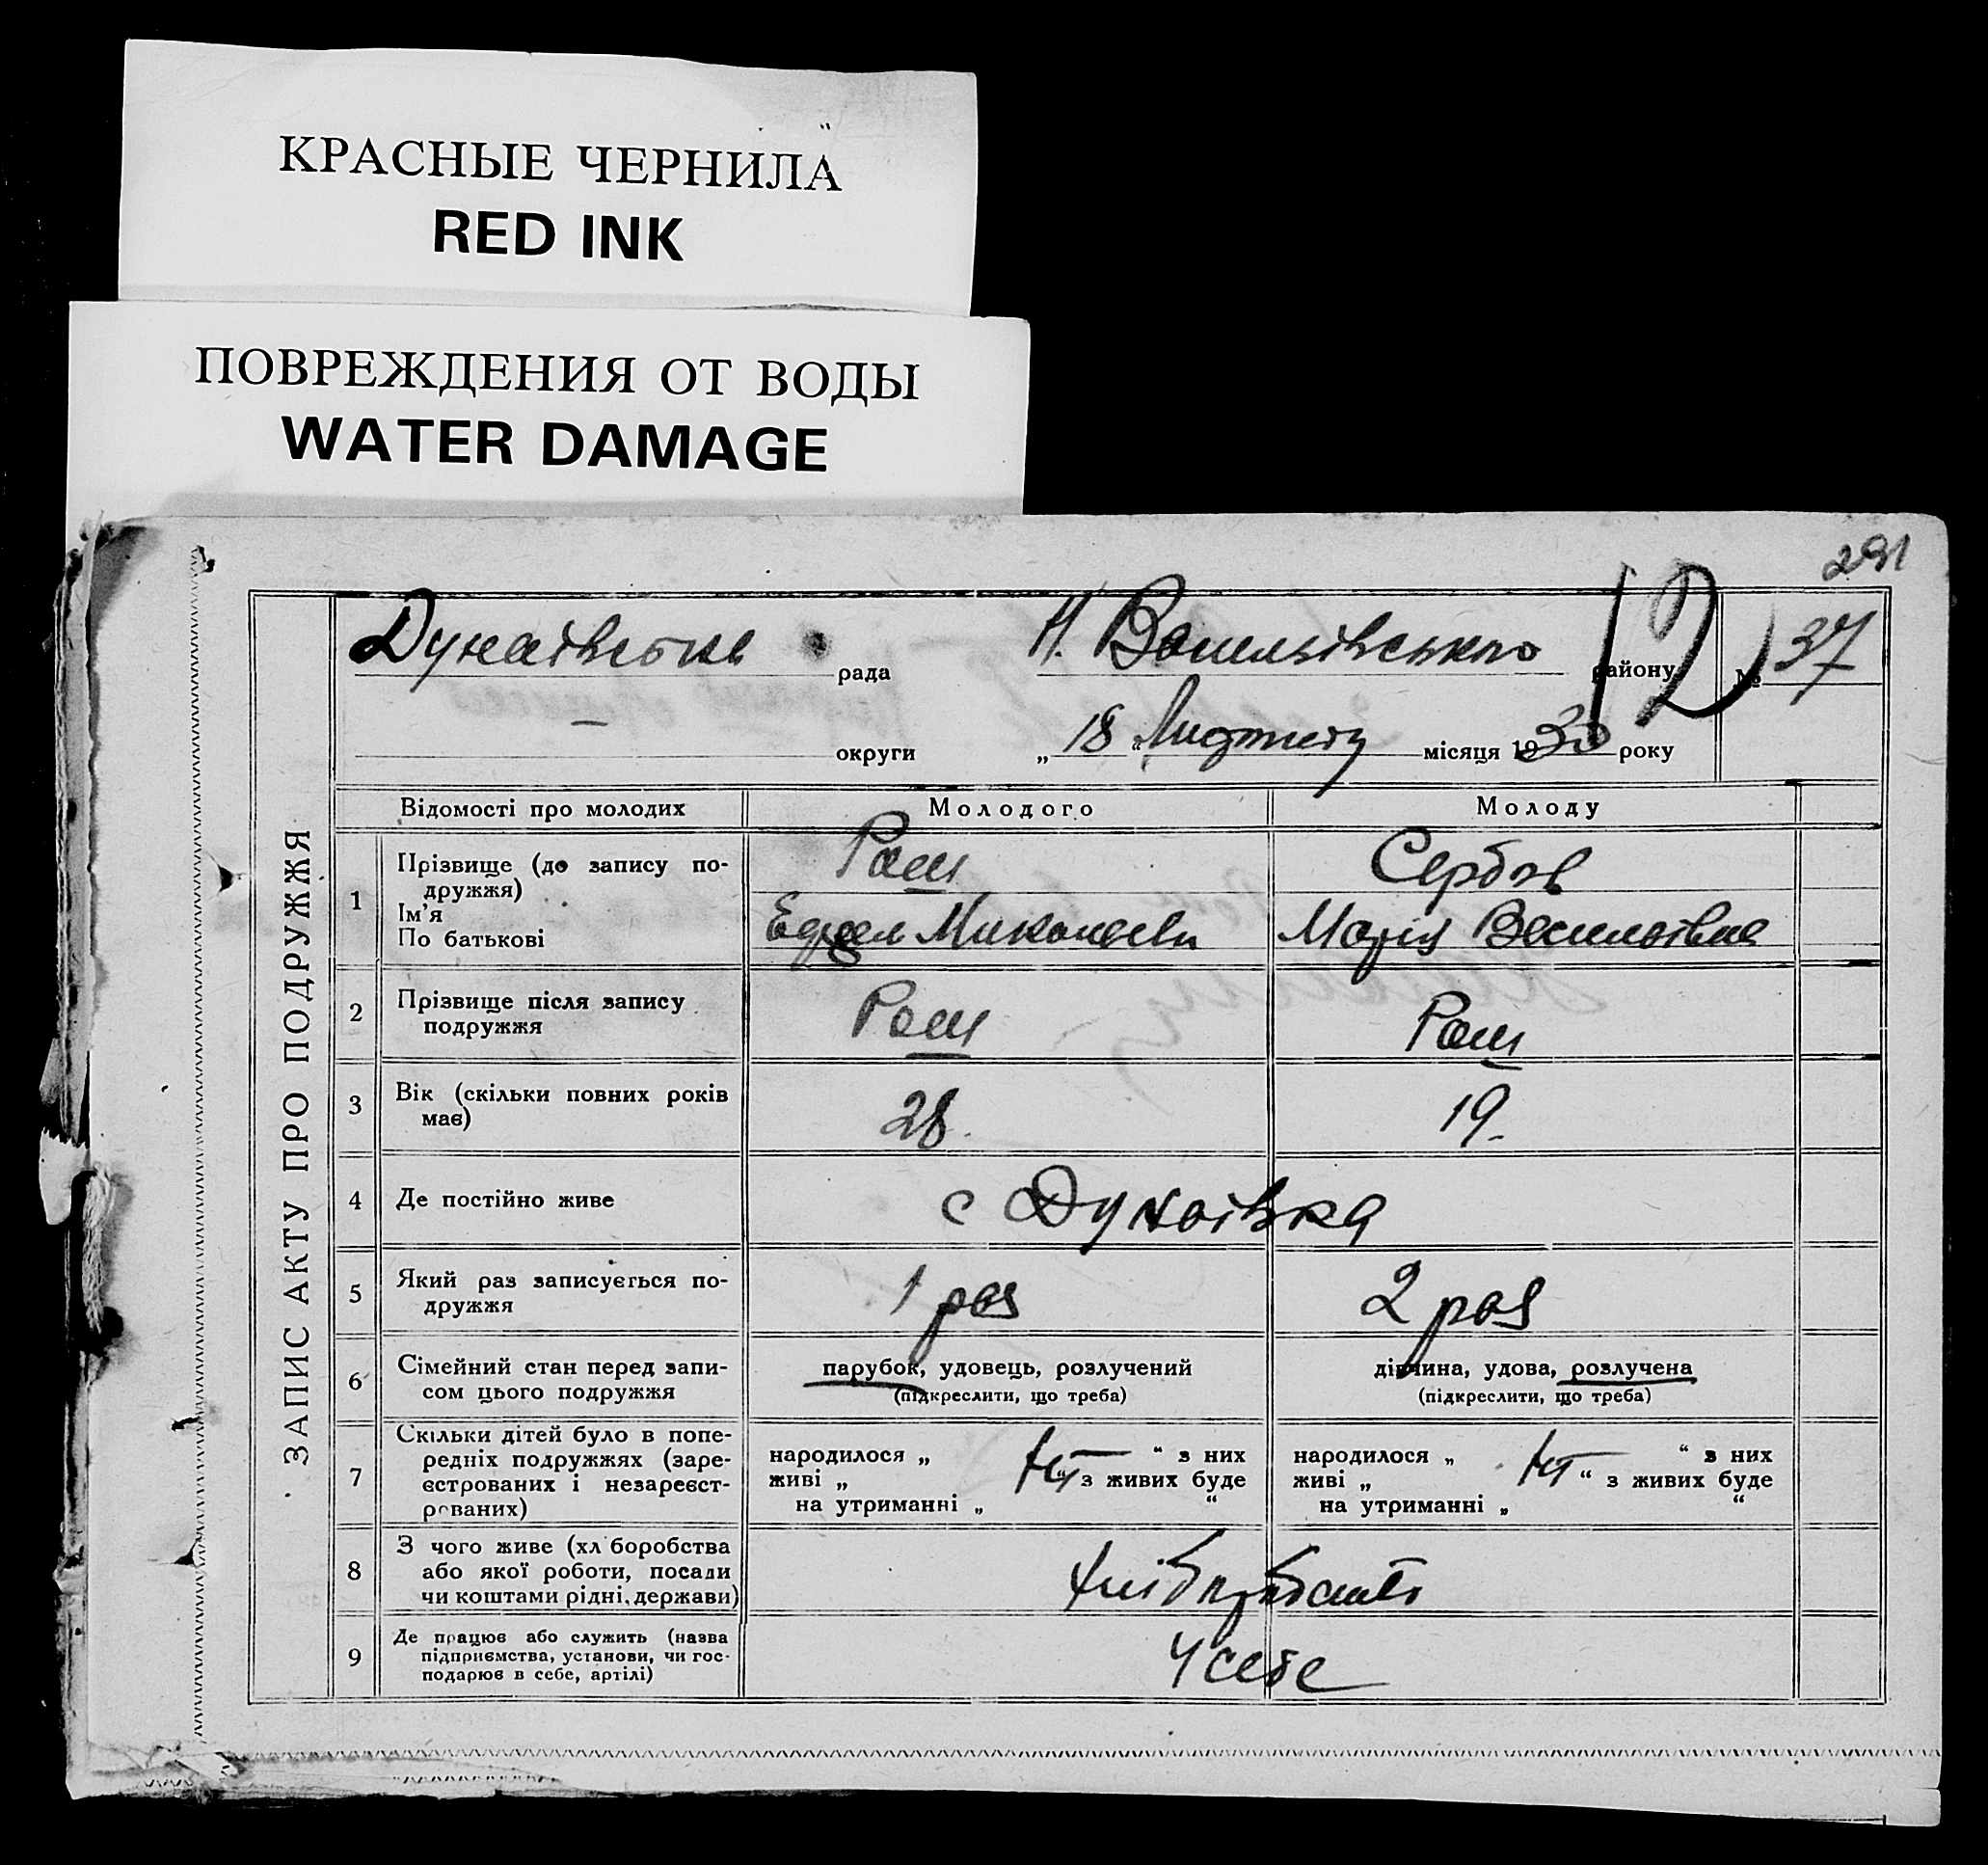 КРАСНЫЕ ЧЕРНИЛА
RED INK
ПОВРЕЖДЕНИЯ ОТ ВОДЫ
WATER DAMAGE
291
ЗАПИС АКТУ ПРО ПОДРУЖЖЯ
Дунаївська рада Н. Васильівського району 12 № 37
— округи „ 18 " місяця 1930 року
Відомості про молодих Молодого Молоду
1 Прізвище (до запису по-
дружжя)
Ім'я
По батькові
Раш Сербов
Миколаєви Марія Васильівна
2 Прізвище після запису
подружжя
Раш Раш
3 Вік (скільки повних років
має)
28. 19.
4 Де постійно живе с Дунаївка
5 Який раз записується по-
дружжя
1 раз 2 раз
6 Сімейний стан перед запи-
сом цього подружжя
парубок, удовець, розлучений дівчина, удова, розлучена
(підкреслити, що треба) (підкреслити, що треба)
7 Скільки дітей було в попе-
редніх подружжях (заре-
єстрованих і незареєст-
рованих)
народилося „ “ з них народилося „ “ з них
живі „ “ з живих буде живі „ “ з живих буде
на утриманні „ “ на утриманні „ “
8 З чого живе (хліборобства
або якої роботи, посади
чи коштами рідні, держави)
9 Де працює або служить (назва
підприємства, установи, чи гос-
подарює в себе, артілі)
У себе